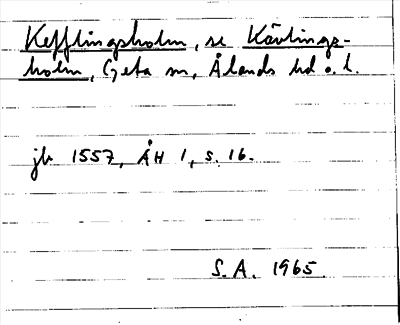 Kefflingsholm, se Kävlings-
holm, Geta sn, Ålands hd o. l.
jb 1557, ÅH 1, s. 16.
S.A. 1965.